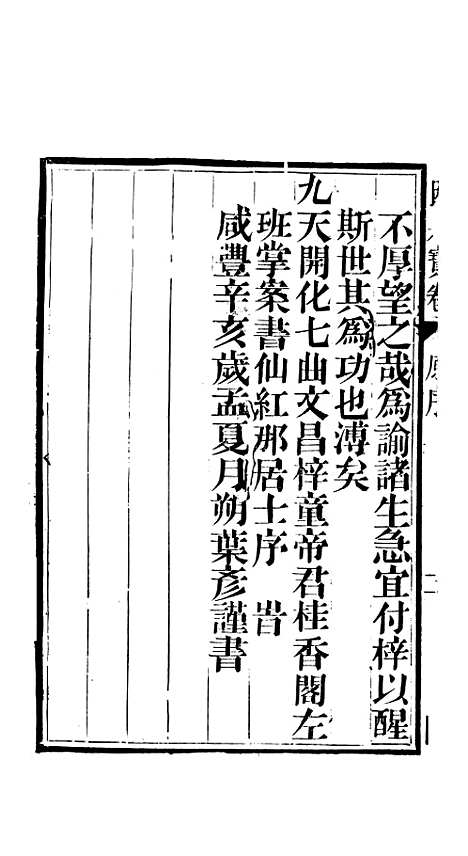 不厚望之哉爲諭諸生急宜付梓以醒
斯世其爲功也溥矣
九天開化七曲文昌梓童帝君桂香閣左
班掌案書仙紅那居士序　旹
咸豐辛亥歲孟夏月朔葉彥謹書
寶卷 原序 二